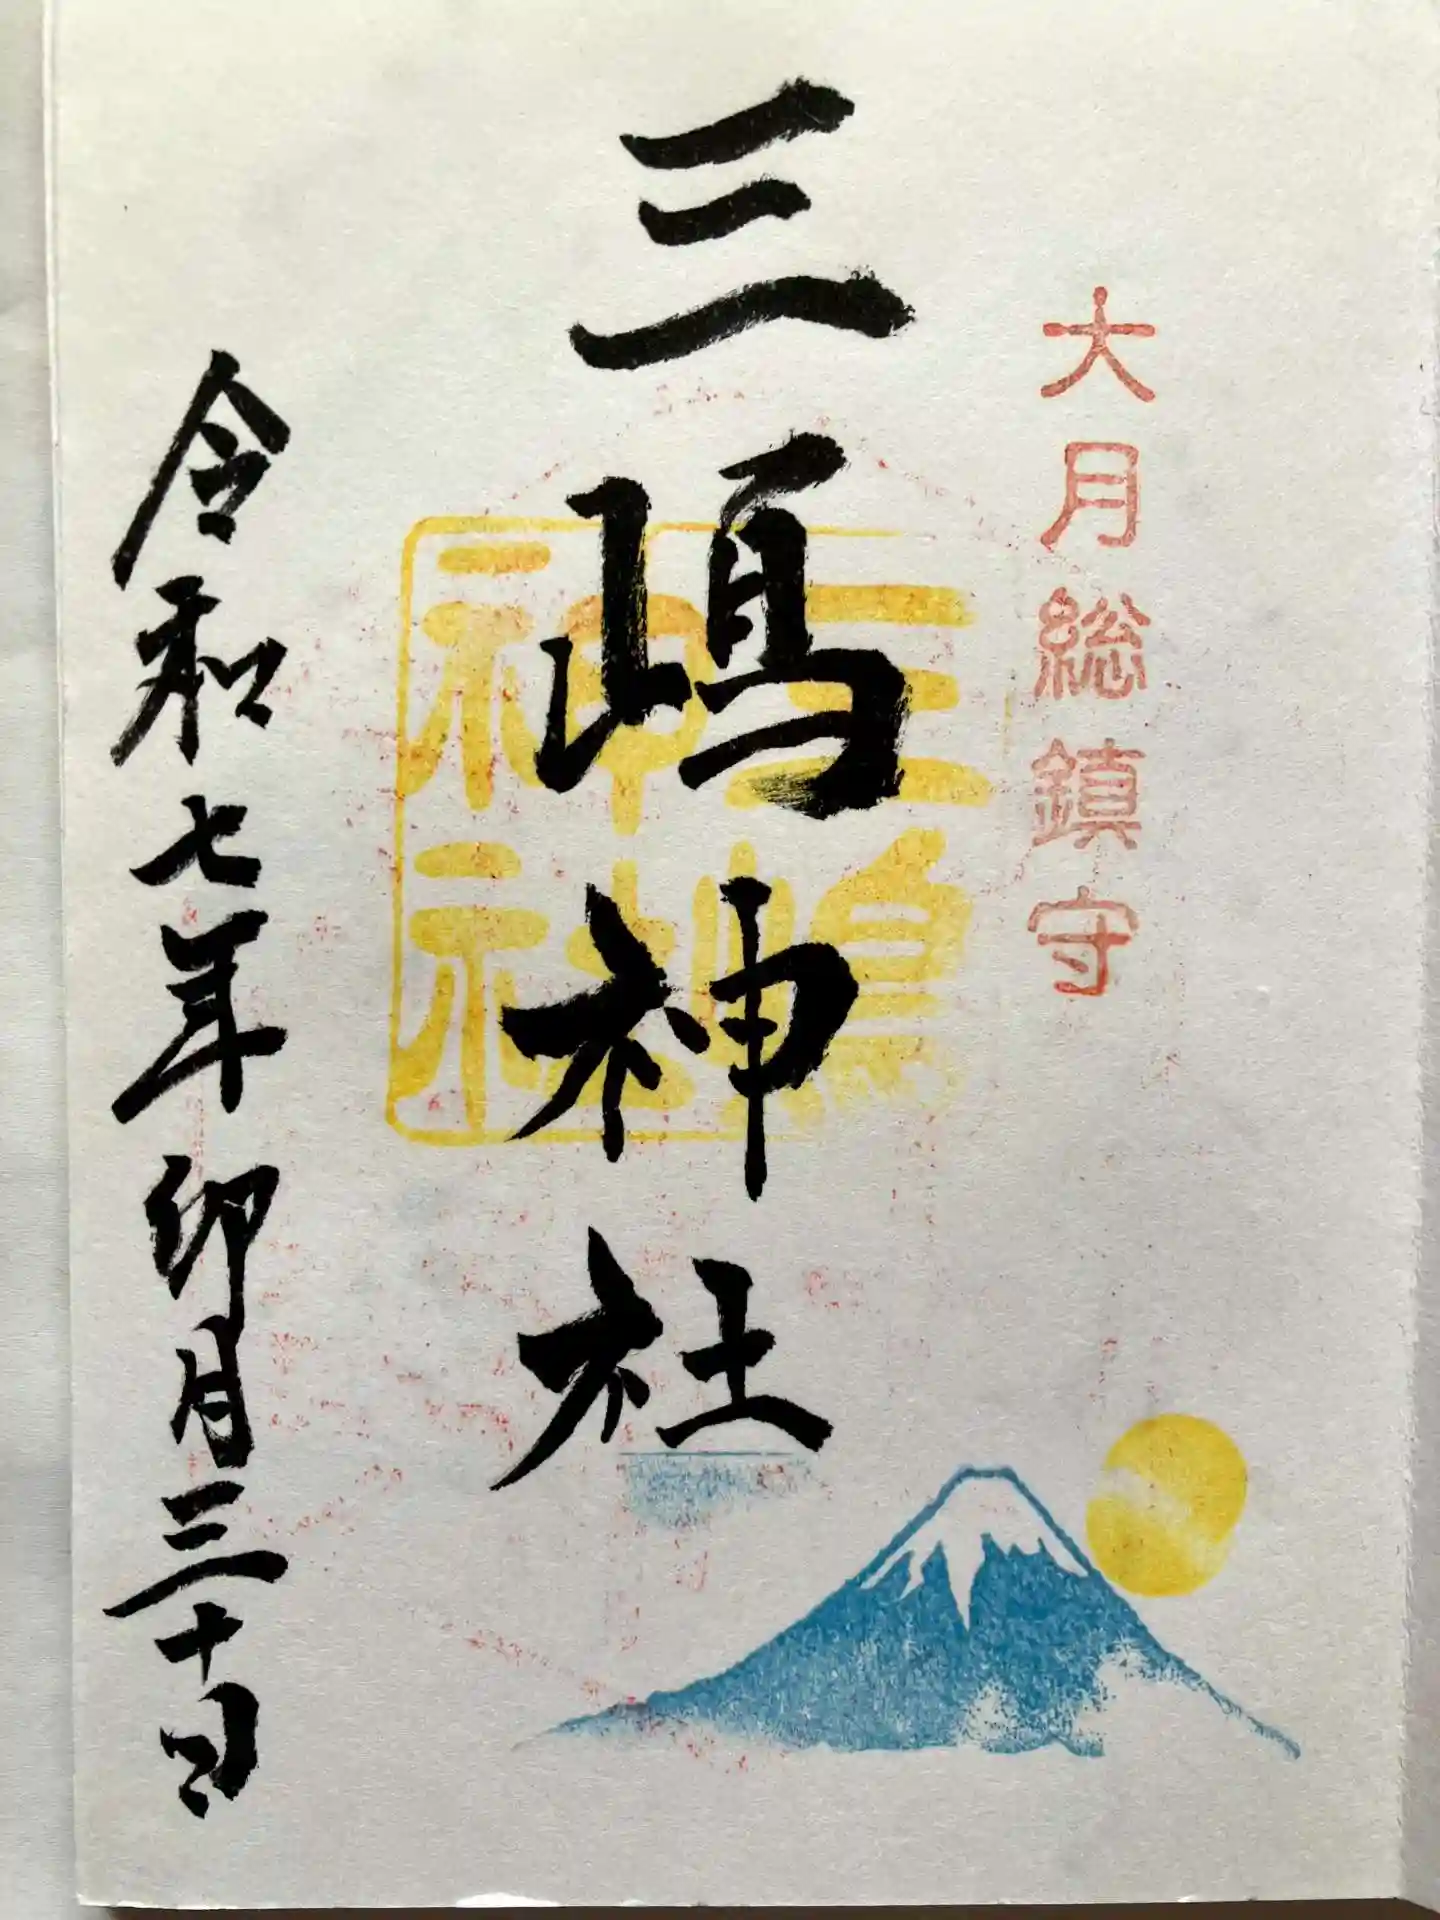 大月総鎮守
三嶋神社
三嶋
神社
令和七年卯月三十日